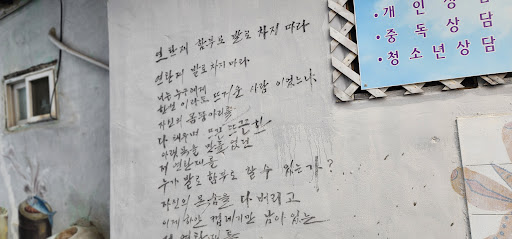 연탄재 함부로 발로 차지 마라
연탄재 발로 차지 마라
너는 누구에게
한번 이라도 뜨거운 사람 이었느냐
자신의 몸뚱아리를
다 태우며 뜨끈 뜨끈한
아랫목을 만들 었던
저 연탄재를
누가 발로 함부로 할 수 있는가?
자신의 목숨을 다 버리고
이제 하얀 껍데기만 남아 있는
저 연탄재를
개인상담
·중독상담
·청소년상담